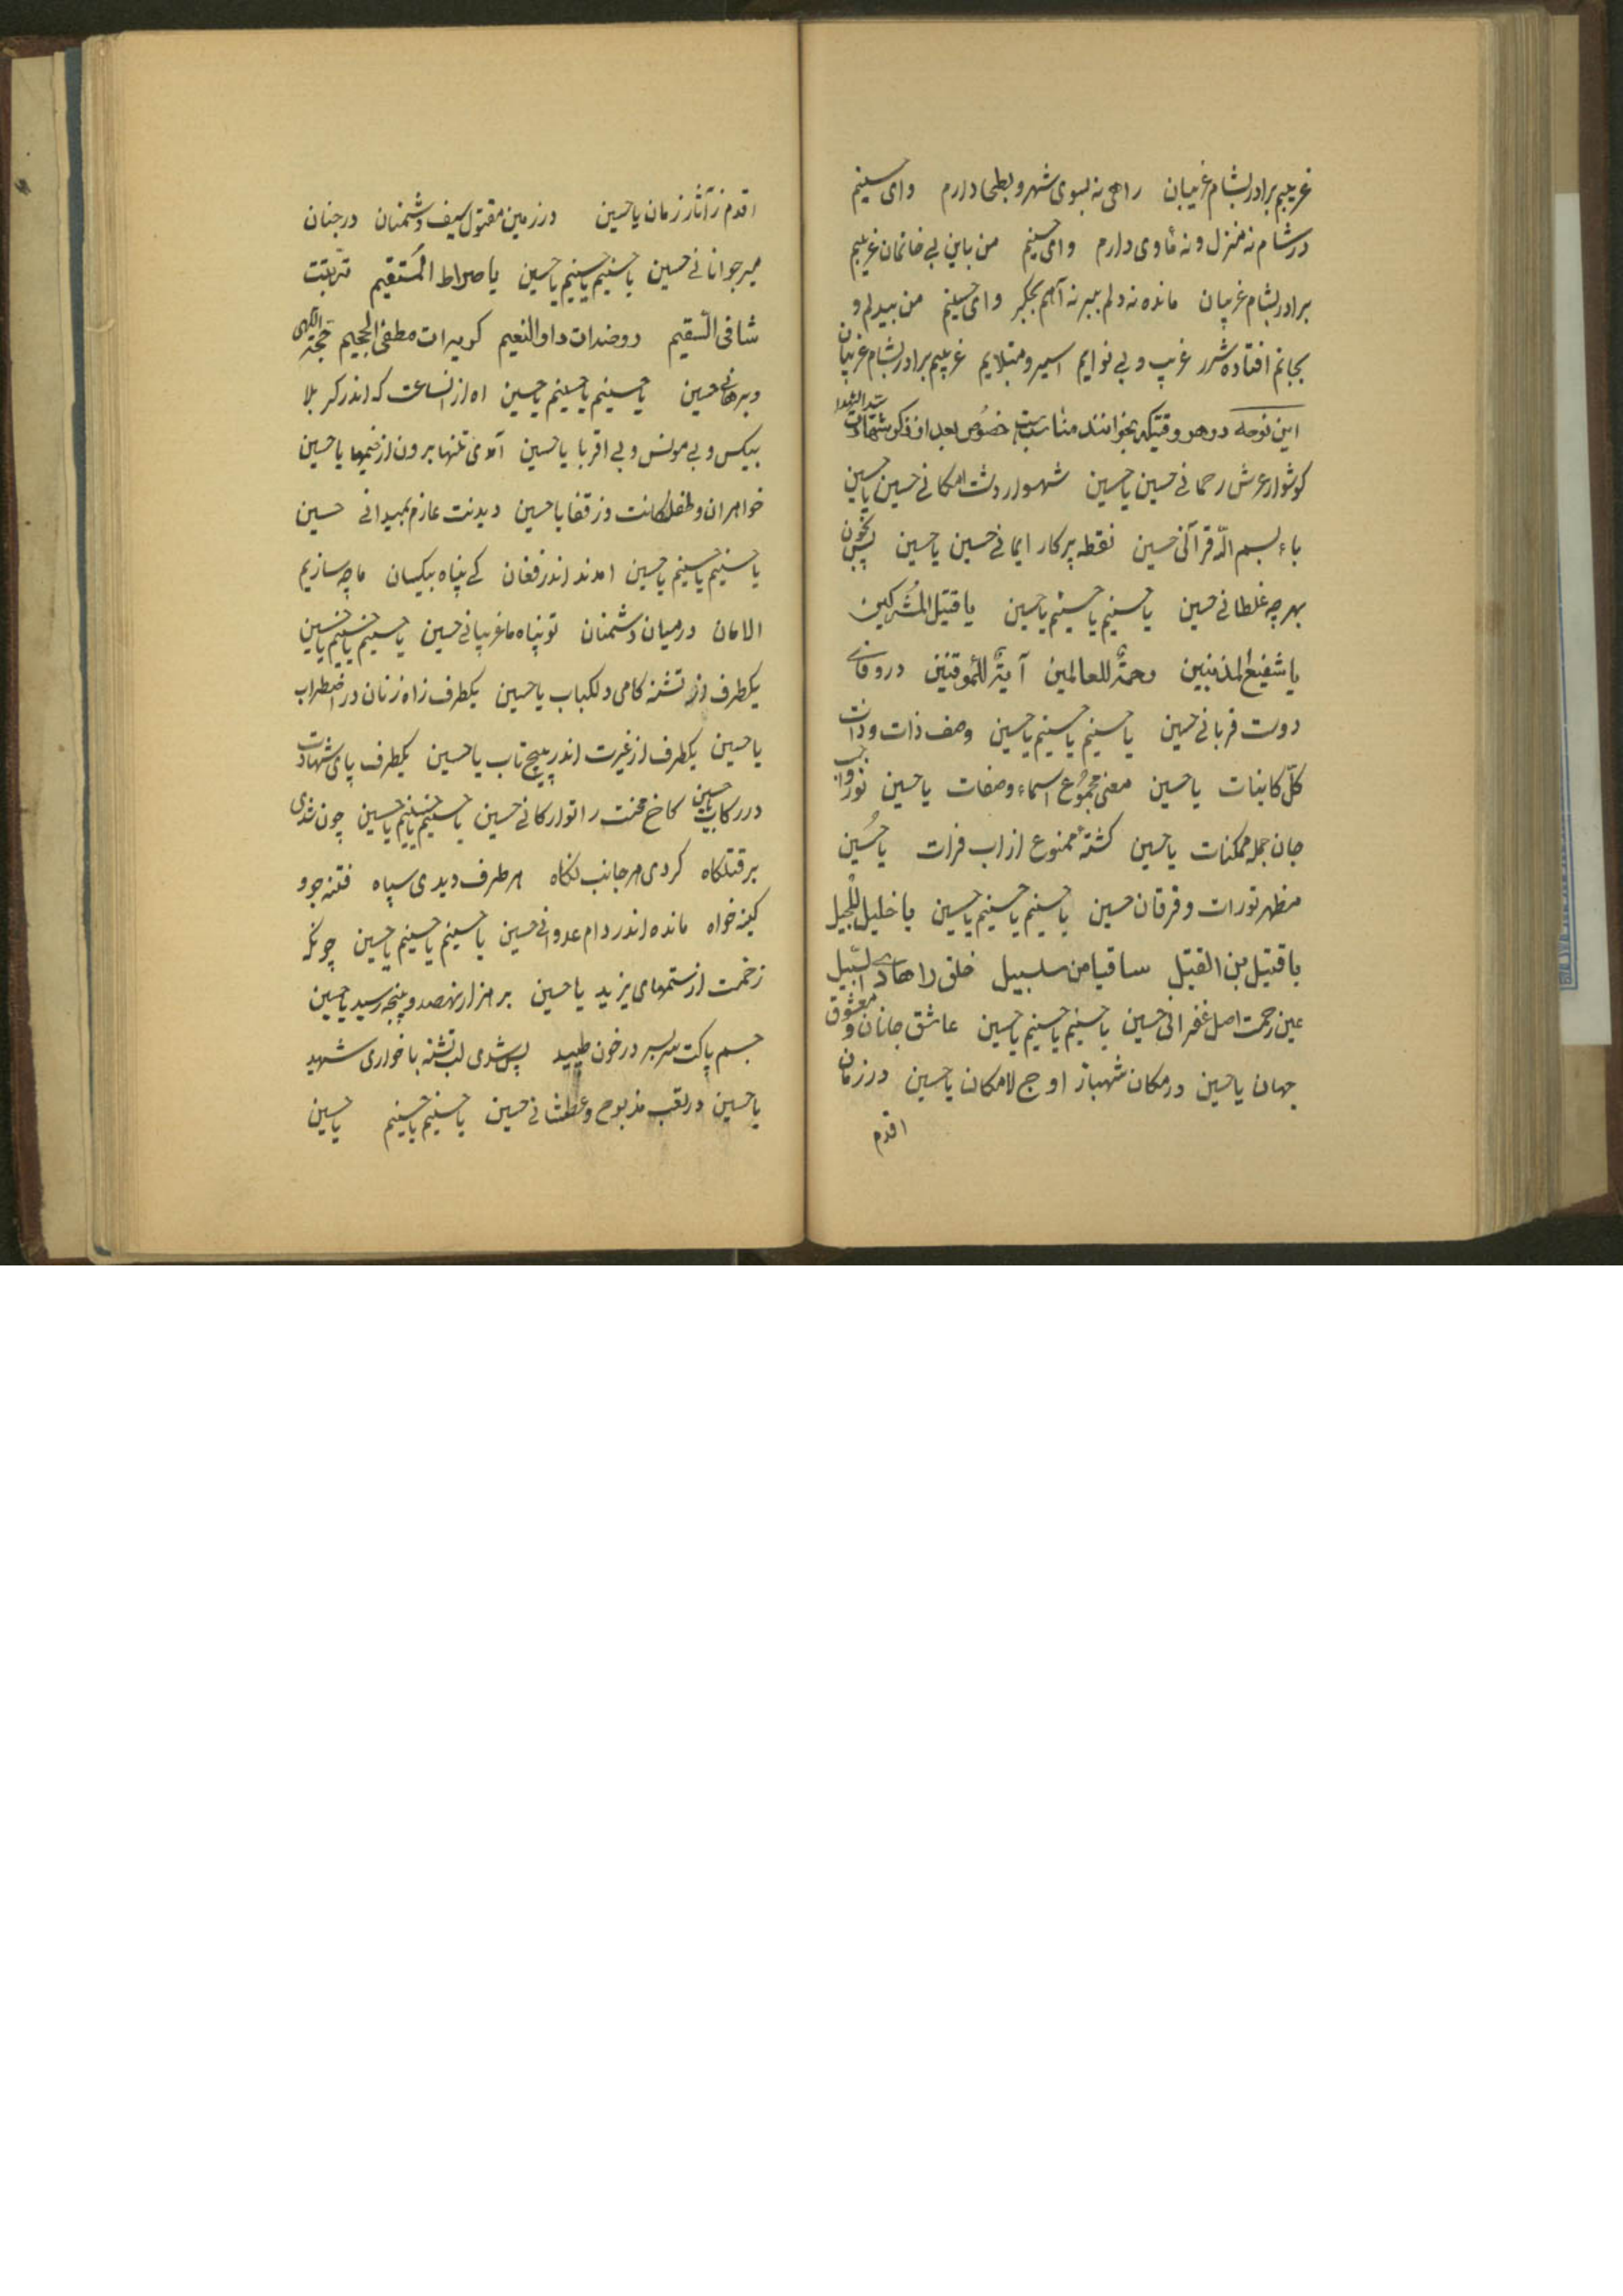 غریبم برادر بشام غریبان راهی نه بسوی شهر و بطحا دارم وای حسینم
در شام نه منزل و نه مأوی دارم وای حسینم من باین بی خانمان غریبم
برادر بشام غریبان مانده نه دلم ببر نه آهم بجگر وای حسینم من بیدل و
بجانم افتاده شرر غریب و بی نوایم اسیر و مبتلایم غریبم برادر بشام غریبان
این نوحه در هر وقتیکه بخوانند مناسبست خصوص بعد از ذکر شهادت سید الشهدا
کوشوار عرش رحمانی حسین یاحسین شهسوار دشت امکانی حسین یاحسین
باء بسم اللّه قرآنی حسین نقطه پرکار ایمانی حسین یاحسین پس بخون
بهر چه غلطانی حسین یاحسینم یاحسینم یاحسین یا قتیل المشرکین
یا شفیع المذنبین رحمة للعالمین آیة للموقنین در وفای
دوست قربانی حسین یاحسینم یاحسینم یاحسین وصف ذات و ذات
کلّ کاینات یاحسین معنی مجموع اسماء و صفات یاحسین نور واجب
جان جمله ممکنات یاحسین کشتهٔ ممنوع از اب فرات یاحُسین
مظهر تورات و فرقان حسین یاحسینم یاحسینم یاحسین یا خلیل للجلیل
یا قتیل بن القتیل ساقیا من سلسبیل خلق را هادی السّبیل
عین رحمت اصل غفرانی حسین یاحسینم یاحسینم یاحسین عاشق جانان و معشوق
جهان یاحسین در مکان شهباز اوج لامکان یاحسین در زمان
اقدم
اقدم ز آثار زمان یاحسین در زمین مقتول سیف دشمنان در جنان
میر جوانانی حسین یاحسینم یاحسینم یاحسین یا صراط المستقیم تربتت
شافی السّقیم روضه‌ات دار النعیم کریه‌ات مطفی الجحیم حجّة اللهی
و برهانی حسین یاحسینم یاحسینم یاحسین اه از انساعت که اندر کربلا
بیکس و بی مونس و بی اقربا یاحسین آمدی تنها برون از خیمها یاحسین
خواهران و طفلکانت در قفا یاحسین دیدنت عازم بمیدانی حسین
یاحسینم یاحسینم یاحسین امدند اندر فغان کے پناه بیکسان ما چه سازیم
الامان در میان دشمنان تو پناه ما غریبانی حسین یاحسینم یاحسینم یاحسین
یکطرف از تشنه کامی دلکباب یاحسین یکطرف ز اه زنان در اضطراب
یاحسین یکطرف از غیرت اندر پیچ تاب یاحسین یکطرف پای شهادت
در رکاب یاحسین کاخ محنت را تو ارکانی حسین یاحسینم یاحسینم یاحسین چون شدی
بر قتلکاه کردی هر جانب نکاه هر طرف دیدی سپاه فتنه جو و
کینه خواه مانده اندر دام عدوانی حسین یاحسینم یاحسینم یاحسین چونکه
زخمت از ستمهای یزید یاحسین بر هزار نهصد و پنجه رسید یاحسین
جسم پاکت سر بسر در خون طپید پس شدی لب تشنه با خواری شهید
یاحسین در لقب مذبوح و عطشانی حسین یاحسینم یاحسینم یاحسین